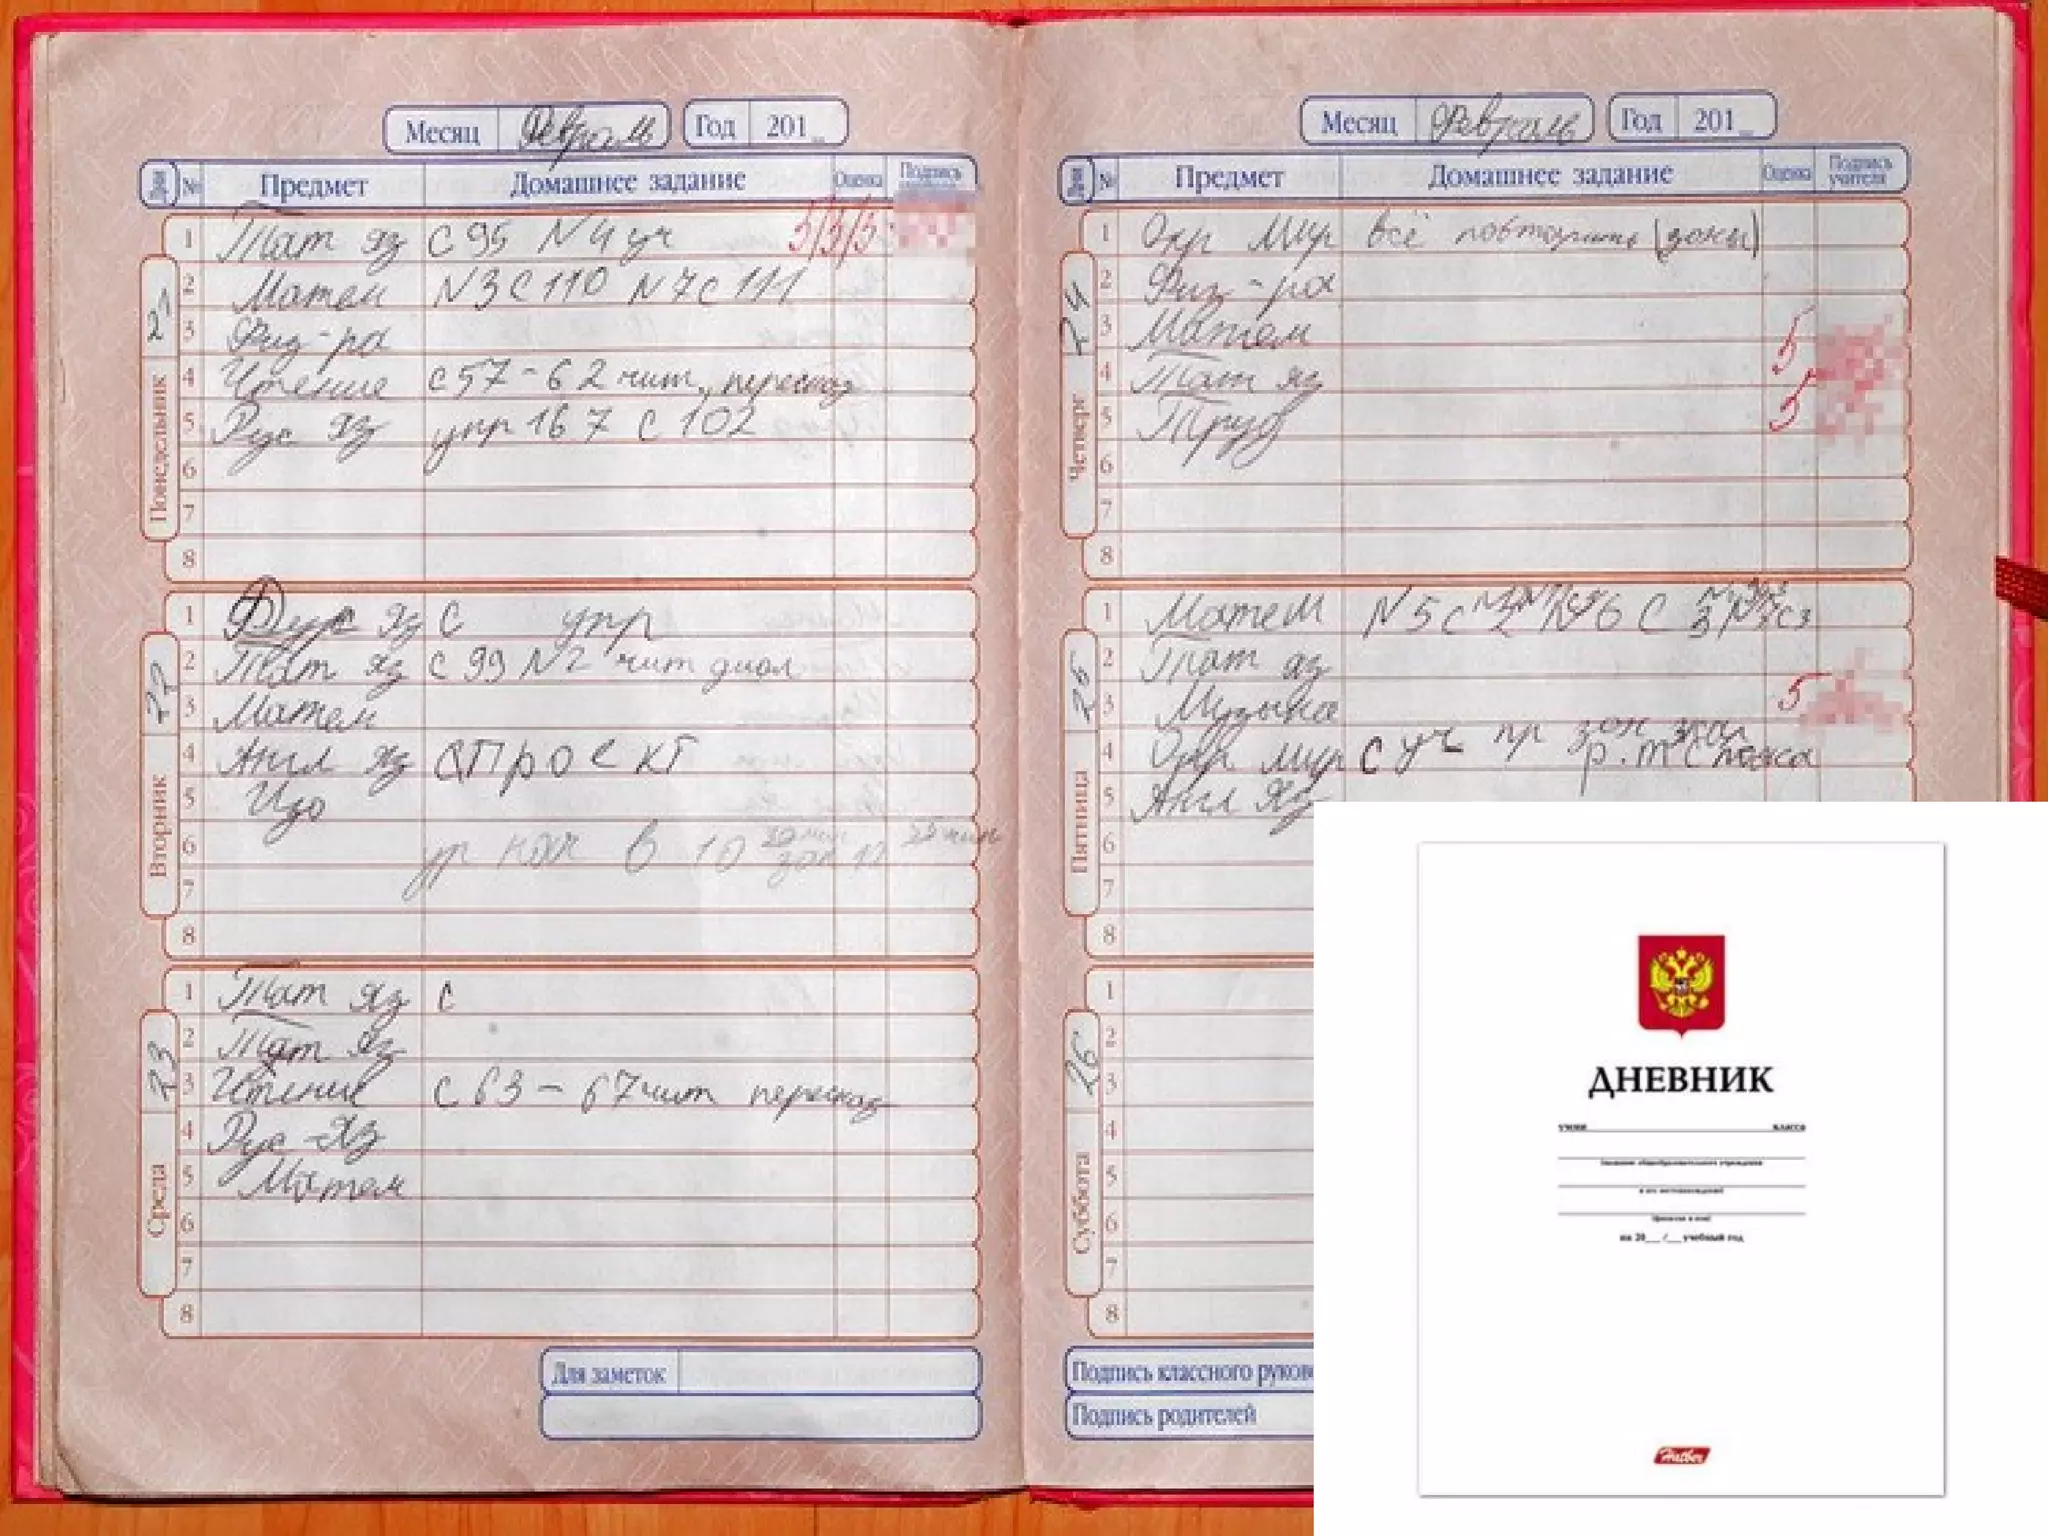 Месяц Февраль Год 201
№ Предмет Домашнее задание Оценка Подпись
Понедельник
1 Тат яз с 95 N4 уч 5/5/5
2 Матем N3 с 110 N7 с 111
3 Физ-ра
4 Чтение с 57-62 чит, пересказ
5 Рус яз упр 167 с 102
6
7
8
22 Вторник
1 Рус яз с упр
2 Тат яз с 99 N2 чит диал
3 Матем
4 Англ яз проект
5 Изо
6 ур нач в 10 30 мин зак 12 25 мин
7
8
23 Среда
1 Тат яз с
2 Тат яз
3 Чтение с 63 - 67 чит пересказ
4 Рус-яз
5 Матем
6
7
8
Для заметок
Месяц Февраль Год 201
№ Предмет Домашнее задание Оценка Подпись учителя
24 Четверг
1 Окр Мир всё повторить (зоны)
2 Физ-ра
3 Матем 5
4 Тат яз
5 Труд 5
6
7
8
25 Пятница
1 Матем N5 с N6 с 3
2 Тат яз
3 Музыка 5
4 Окр мир с уч пр зон
р.т с
5 Англ яз
6
7
8
26 Суббота
1
2
3
4
5
6
7
8
Подпись классного руково
Подпись родителей
ДНЕВНИК
учени класса
Название общеобразовательного учреждения
и его местонахождение
Фамилия и имя
на 20__ /__ учебный год
Hatber